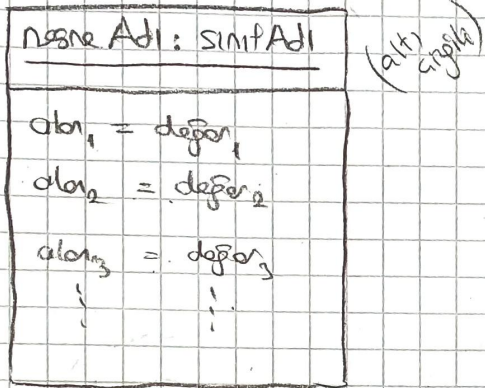 nesne Adı : sınıf Adı
(altı çizgili)
alan₁ = değer₁
alan₂ = değer₂
alan₃ = değer₃
⋮ ⋮